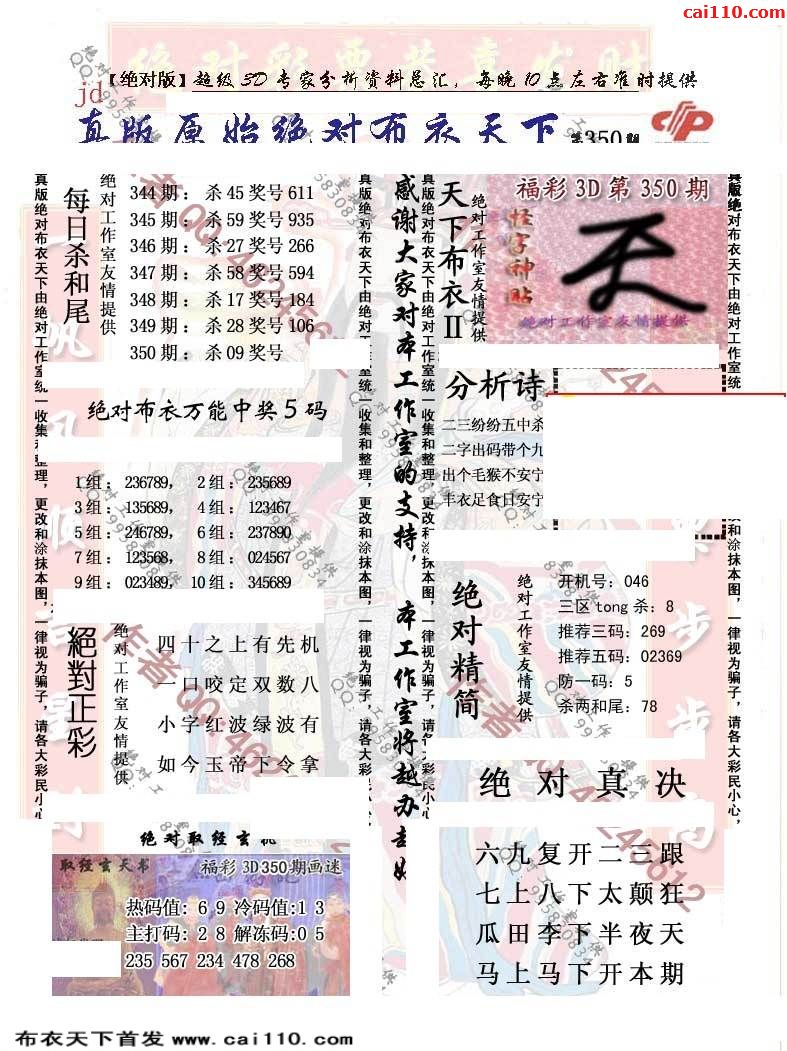 cai110.com
【绝对版】超级3D专家分析资料总汇，每晚10点左右准时提供
jd
真版原始绝对布衣天下
第350期
真版绝对布衣天下由绝对工作室统一收集和整理，更改和涂抹本图，一律视为骗子，请各大彩民小心
每日杀和尾
绝对工作室友情提供
344期：杀45奖号611
345期：杀59奖号935
346期：杀27奖号266
347期：杀58奖号594
348期：杀17奖号184
349期：杀28奖号106
350期：杀09奖号
绝对布衣万能中奖5码
1组：236789， 2组：235689
3组：135689， 4组：123467
5组：246789， 6组：237890
7组：123568， 8组：024567
9组：023489， 10组：345689
絕對正彩
绝对工作室友情提供
四十之上有先机
一口咬定双数八
小字红波绿波有
如今玉帝下令拿
绝对取经玄机
取经玄天书
福彩3D350期画迷
热码值：69冷码值:13
主打码：28解冻码:05
235 567 234 478 268
真版绝对布衣天下由绝对工作室统一收集和整理，更改和涂抹本图，一律视为骗子，请各大彩民小心
感谢大家对本工作室的支持，本工作室将越办越好
真版绝对布衣天下由绝对工作室统一收集和整理，更改和涂抹本图，一律视为骗子，请各大彩民小心
天下布衣II
绝对工作室友情提供
福彩3D第350期
怪字神贴
绝对工作室友情提供
分析诗
二三纷纷五中杀
二字出码带个九
出个毛猴不安宁
丰衣足食日安宁
绝对精简
绝对工作室友情提供
开机号：046
三区tong杀：8
推荐三码：269
推荐五码：02369
防一码：5
杀两和尾：78
绝对真决
六九复开二三跟
七上八下太颠狂
瓜田李下半夜天
马上马下开本期
真版绝对布衣天下由绝对工作室统
和涂抹本图，一律视为骗子，请各大彩民小心，
布衣天下首发 www.cai110.com